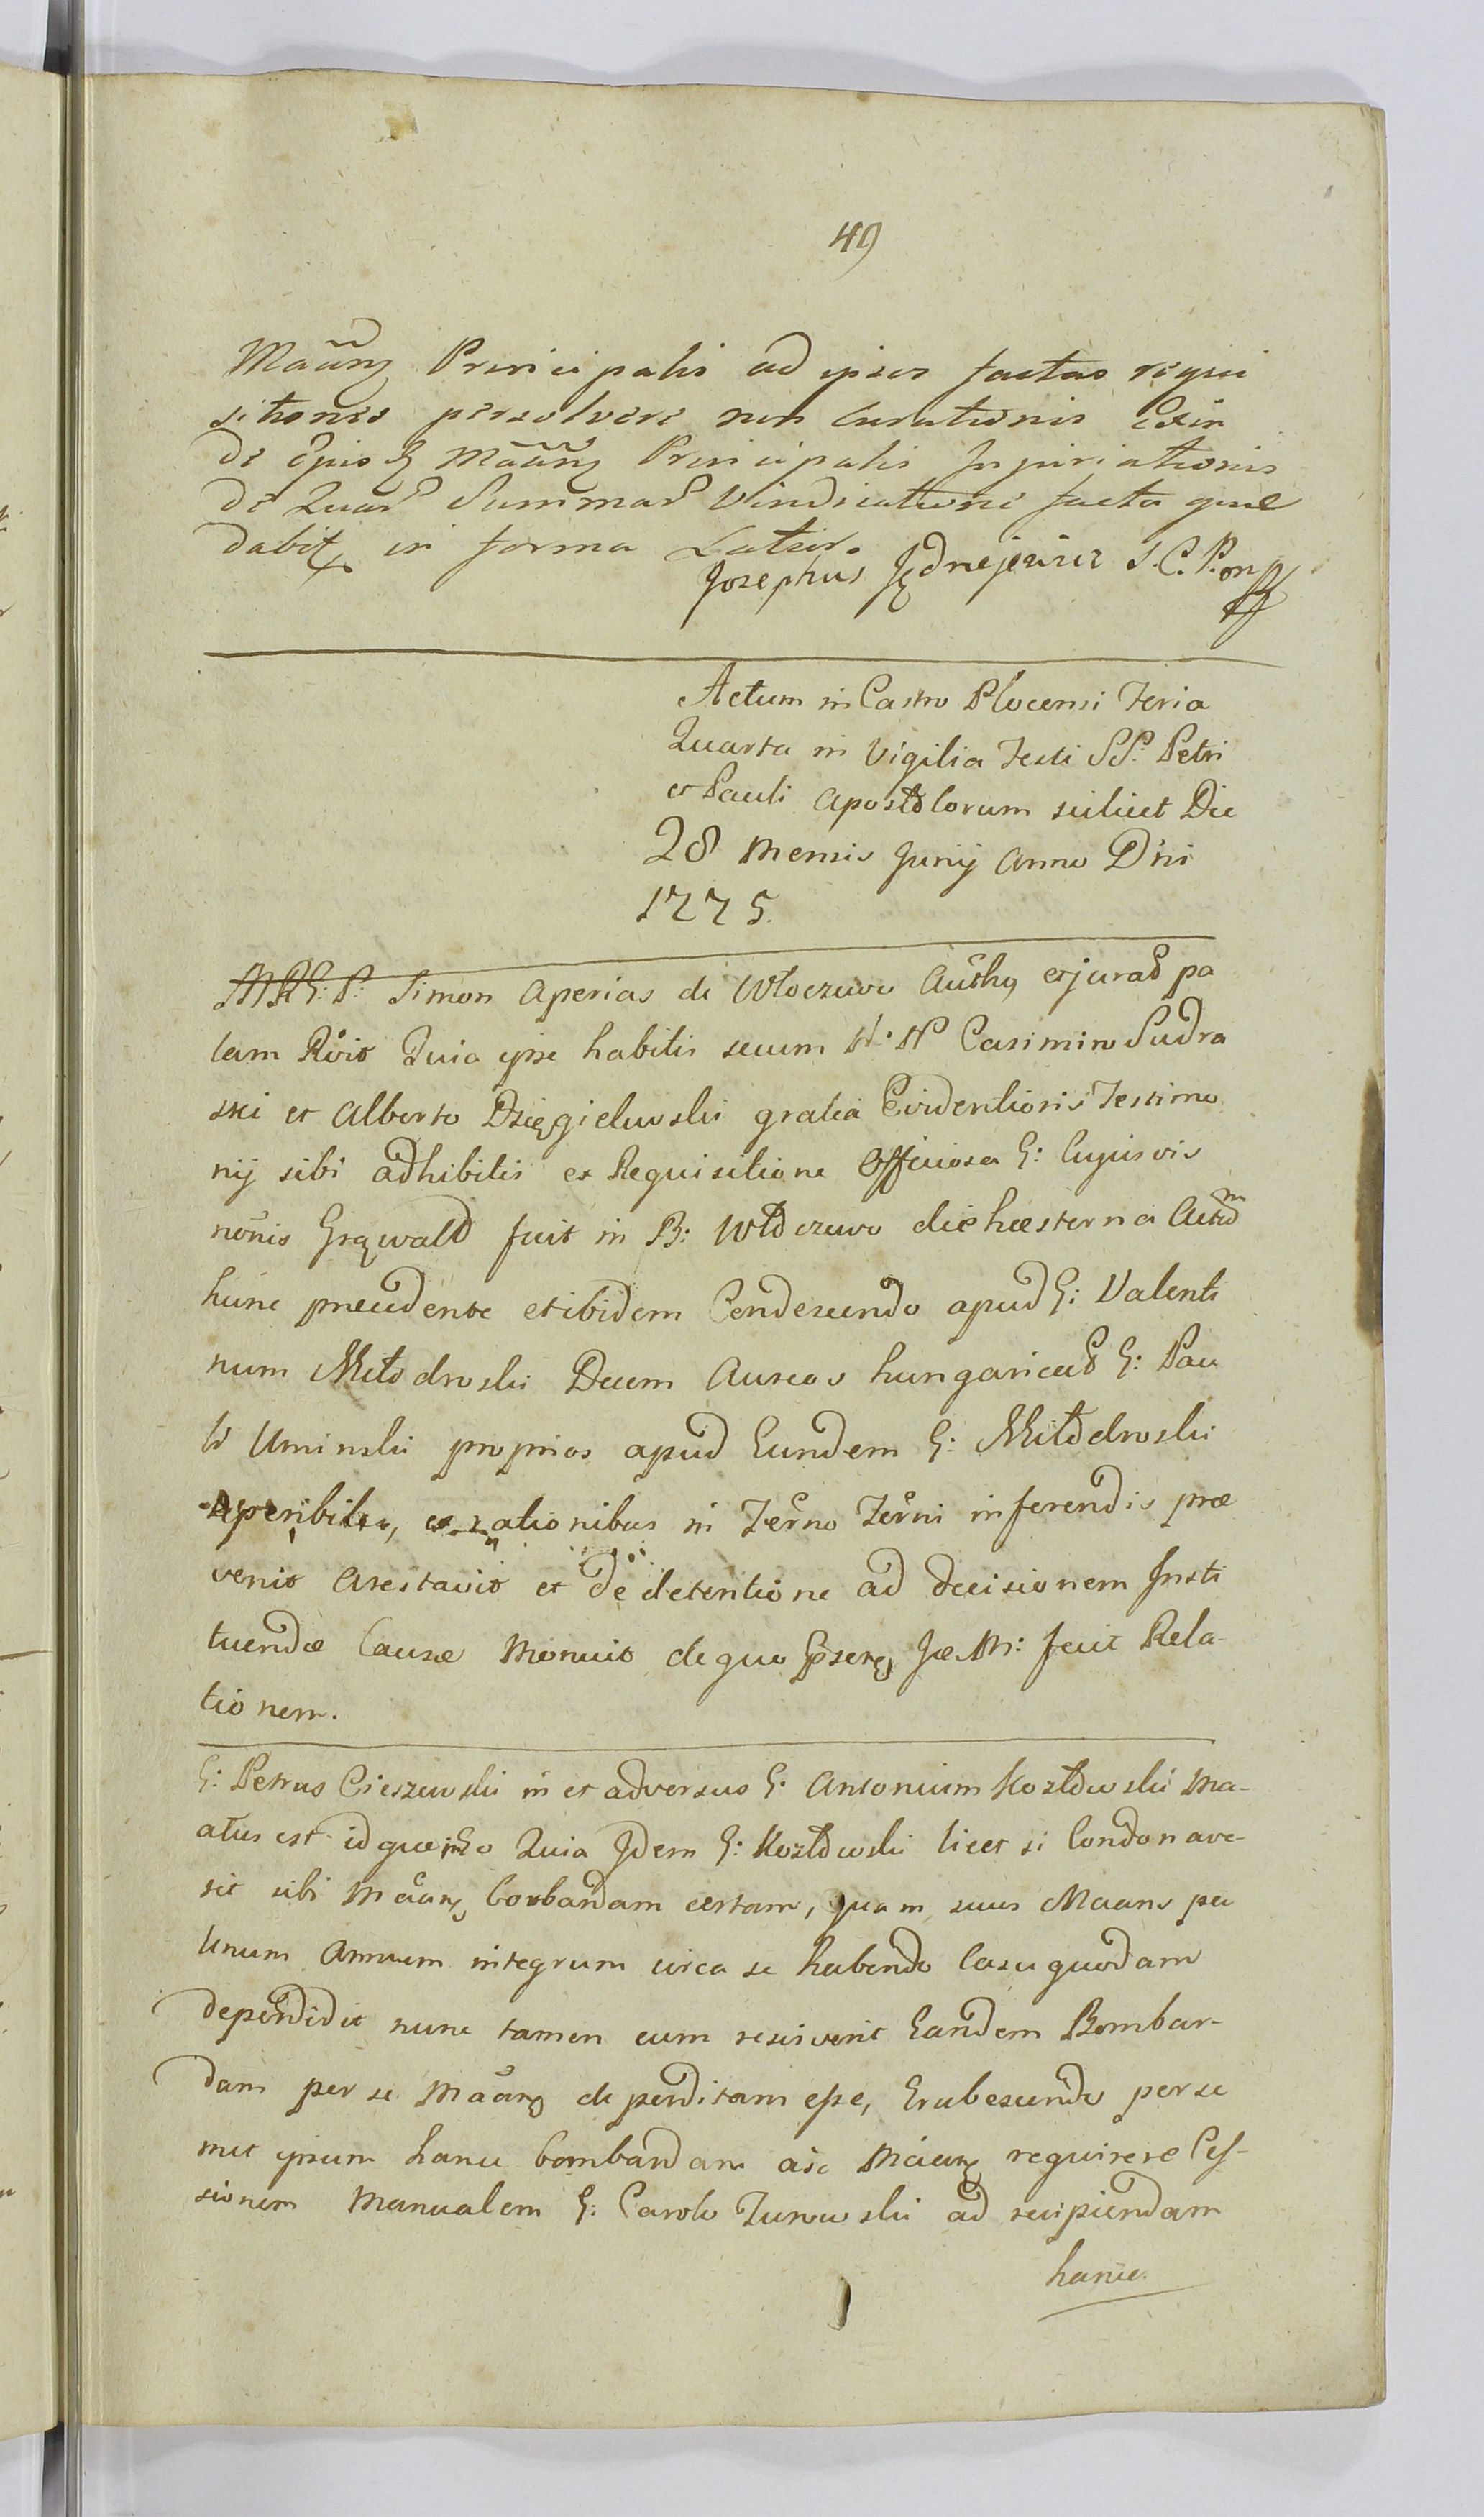 49
Maãnẽ Principalis ad ipsos factas requi
sitiones persolvere non curationis Exin
de Ejusq Maãnẽ Principalis Injuriationis
de Quar Summar Vindicatione facta que
dabit in forma Latior.
Josephus Jędrzejewicz S. C. P. mp
Actum in Castro Plocensi Feria
Quarta in Vigilia Festi SS. Petri
et Pauli Apostolorum scilicet Die
28 Mensis Junij Anno Dni
1775.
Simon Aperias de Włoczewo Auths et jurat pa
lam Rvit Quia ipse habitis secum N. N Casimiro Sudra
ski et Alberto Dzięgielewski gratia Evidentioris Testimo
nij sibi adhibitis ex Requisitione Officiosa G: Cujusvis
nõnis Grąwald fuit in B: Włoczewo die hæsterna Actum
hunc præcedente et ibidem Condescendo apud G: Valenti
num Miłodroski Decem Aureos hungaricad G: Pau
lo Uminski proprios apud Eundem G: Miłodroski
reperibiles, ex rationibus in Termo Termi inferendis præ
venit Arestavit et de detentione ad decisionem Insti
tuendæ Causæ Monuit de quo Psens Jæ M: fecit Rela-
tionem.
G: Petrus Cieszewski in et adversus G: Antonium Kozłowski Ma-
atus est idque ideo Quia Idem G: Kozłowski licet si Condonave-
rit sibi Maans bombardam certam, quam suus Maans per
Unum Annum integrum circa se habendo Casu quodam
deperdidit nunc tamen cum resciverit Eandem Bombar-
dam per se Maans deperditam esse, Erubescendo per se
met ipsum hance bombardam a se Maans requirere Ces-
sionem Manualem G: Carolo Turowski ad recipiendam
hance.